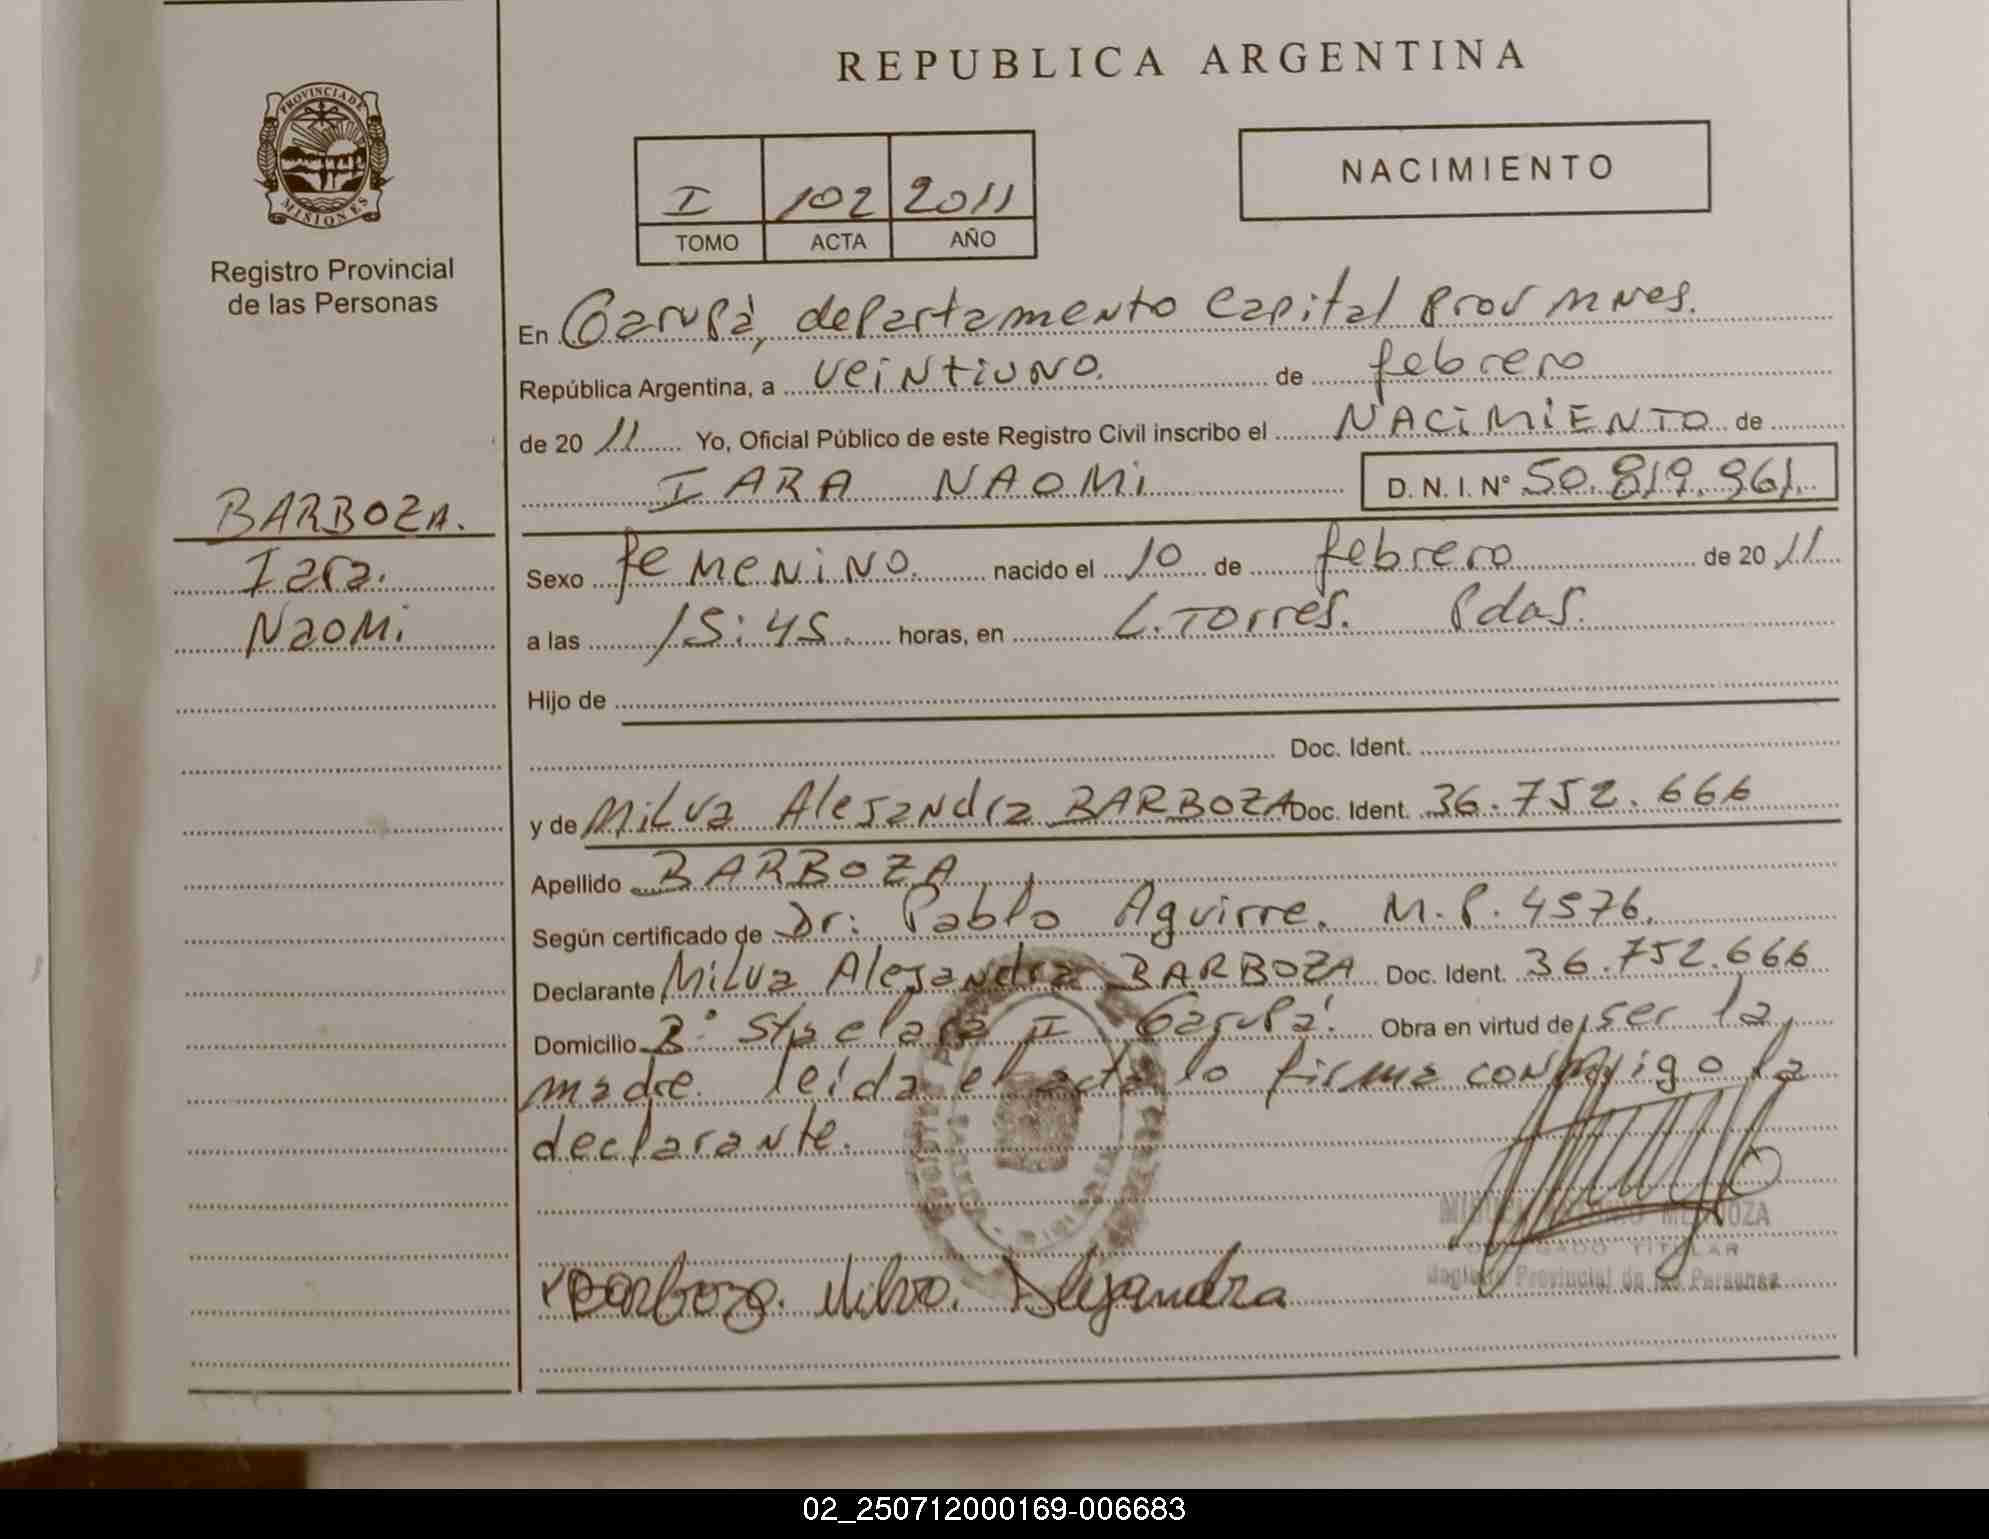 REPUBLICA ARGENTINA
PROVINCIA DE
MISIONES
Registro Provincial
de las Personas
I 102 2011
TOMO ACTA AÑO
NACIMIENTO
En Garupá, departamento Capital Prov Mnes.
República Argentina, a veintiuno. de febrero
de 20 11 Yo, Oficial Público de este Registro Civil inscribo el NACIMIENTO de
IARA NAOMI D. N. I. N° 50.819.961.
BARBOZA.
Iara.
Naomi
Sexo femenino. nacido el 10 de febrero de 20 11
a las 15:45. horas, en L. Torres. Pdas.
Hijo de
Doc. Ident.
y de Milva Alejandra BARBOZA Doc. Ident. 36.752.666
Apellido BARBOZA
Según certificado de Dr: Pablo Aguirre. M.P. 4576.
Declarante Milva Alejandra BARBOZA Doc. Ident. 36.752.666
Domicilio B° II Garupá. Obra en virtud de ser la
madre. leída el acta lo firma conmigo la
declarante.
MENDOZA
DELEGADO TITULAR
Registro Provincial de las Personas
Barboza. Milva. Alejandra
02_250712000169-006683